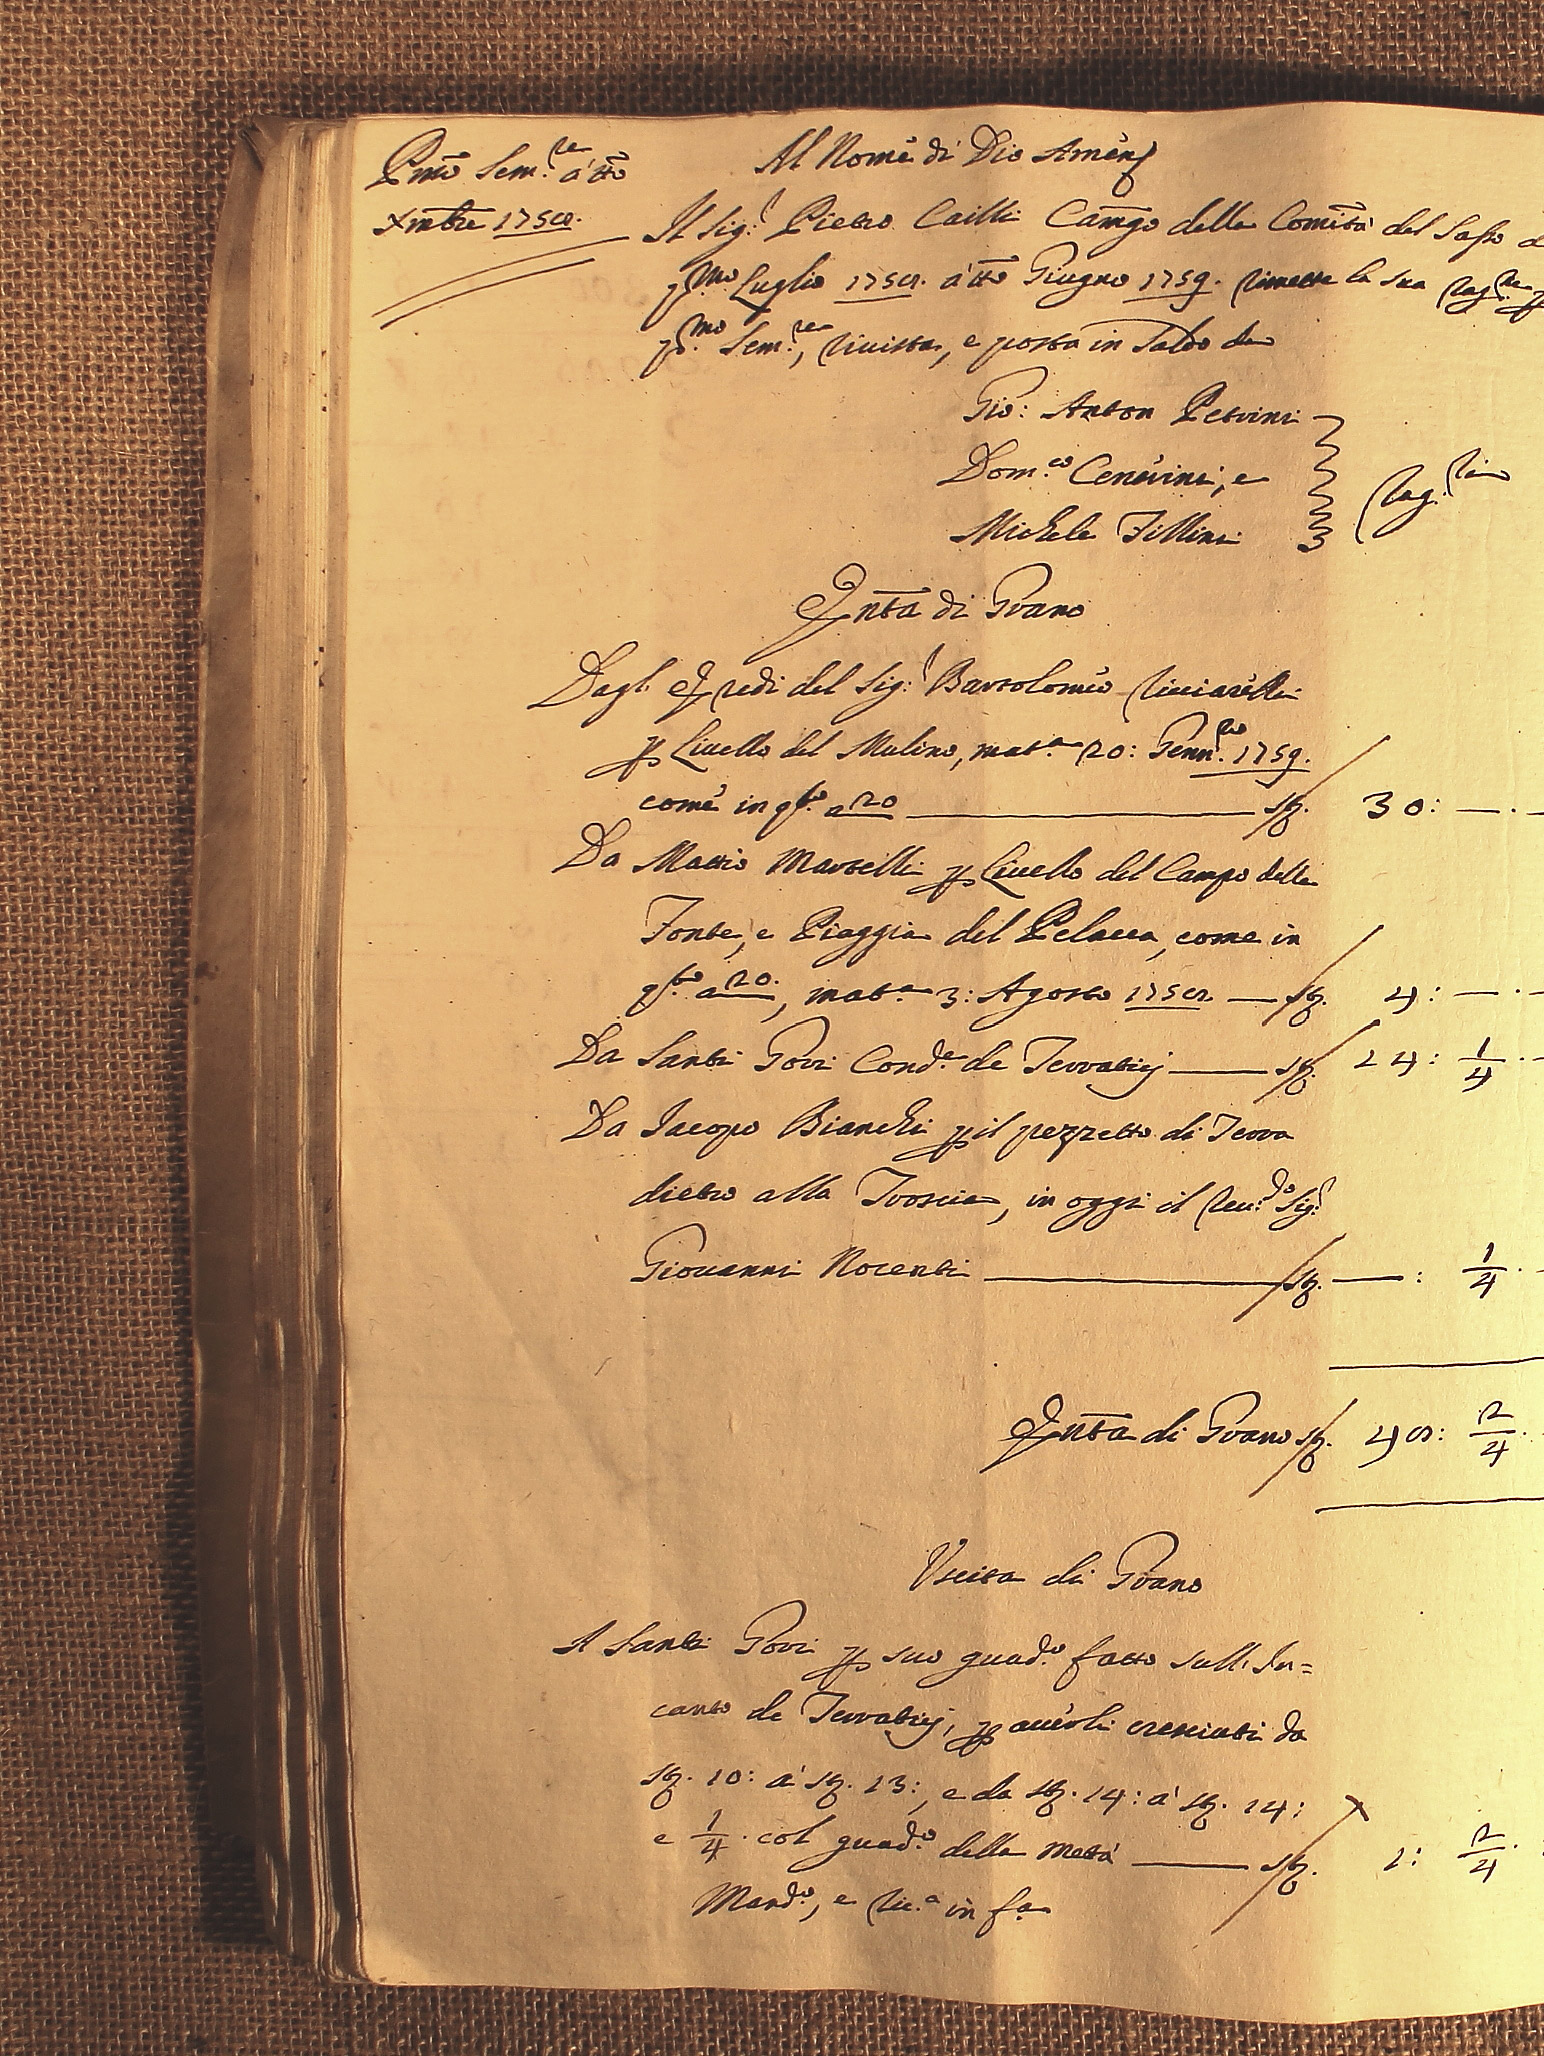 Pmo Sem.re a tto
Xmbre 1758.
Al Nome di Dio Amen
Il Sig.r Pietro Cailli Camgo della Comità del Sasso
p.mo Luglio 1758. a tto Giugno 1759. rimette la sua Rag.ne p
p.mo Sem.re, rivista, e posta in Saldo da
Gio: Anton Petrini
Dom.co Cenerini, e
Michele Fillini
Rag.ri
Entà di Grano
Dagl. Eredi del Sig.r Bartolomeo Ricciarelli
p Livello del Mulino, mat.a 20: Genn.ro 1759.
come in q.to a 20 st. 30: —. —
Da Mattio Martelli p Livello del Campo della
Fonte, e Piaggia del Pelacca, come in
q.to a 20., mat.a 3: Agosto 1758. — st. 4: —. —
Da Santi Gori Cond.e de Terratici — st. 14: 1/4. —
Da Jacopo Bianchi p il pezzetto di Terra
dietro alla Troscia, in oggi il Reu.do Sig.r
Giovanni Nocenti — st. —: 1/4. —
Entà di Grano st. 48: 2/4.
Uscita di Grano
A Santi Gori p suo guad.o fatto sull. In=
canto de Terratici, p averli cresciuti da
st. 10: a st. 13:, e da st. 14: a st. 14:
e 1/4. col guad.o della metà — st. 1: 2/4.
Mand.o, e ric.a in fa